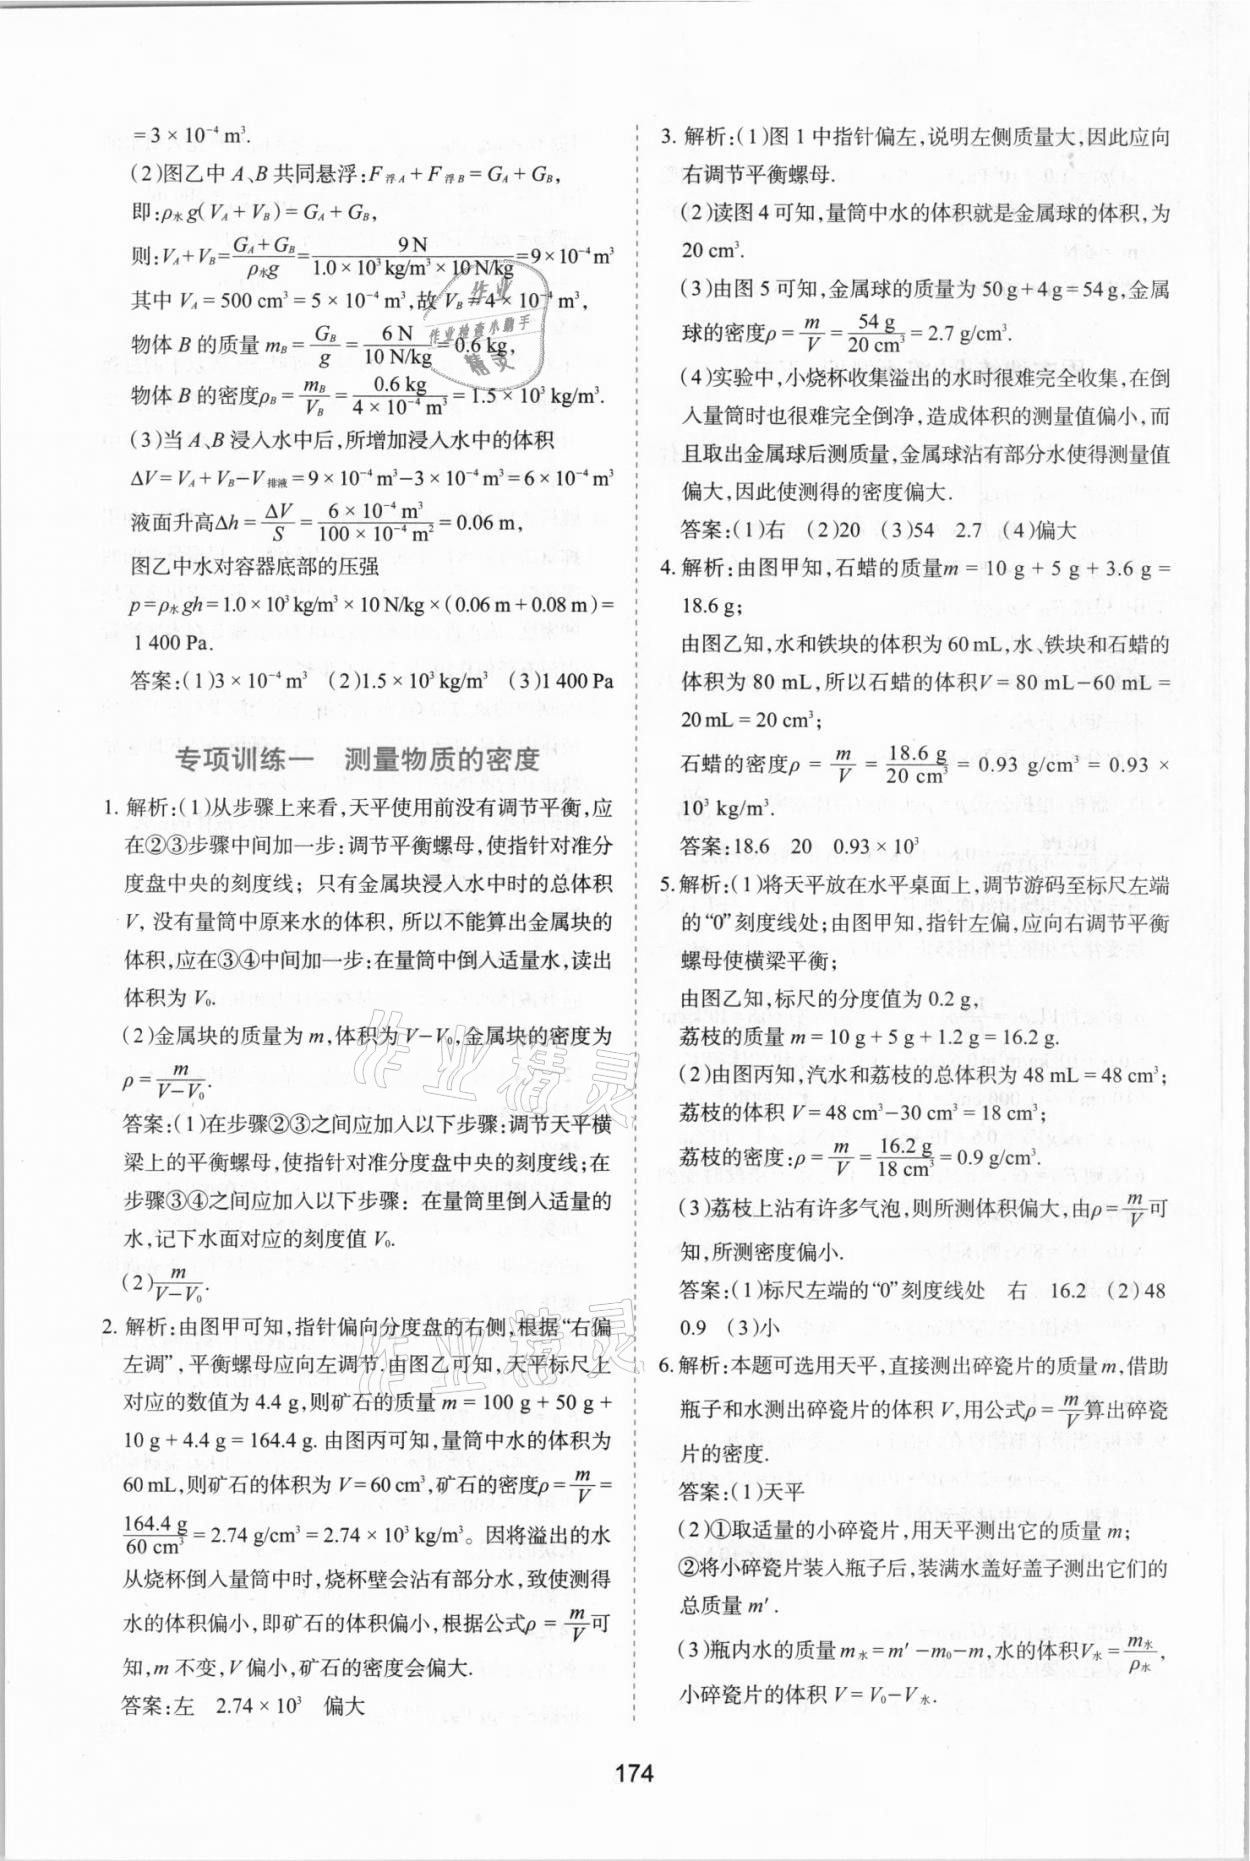 =3×10⁻⁴ m³.
(2)图乙中 A、B 共同悬浮:F浮A+F浮B=GA+GB,
即:ρ水g(VA+VB)=GA+GB,
则:VA+VB=(GA+GB)/(ρ水g)=9 N/(1.0×10³ kg/m³×10 N/kg)=9×10⁻⁴ m³
其中 VA=500 cm³=5×10⁻⁴ m³,故 VB=4×10⁻⁴ m³,
物体 B 的质量 mB=GB/g=6 N/(10 N/kg)=0.6 kg,
物体 B 的密度ρB=mB/VB=0.6 kg/(4×10⁻⁴ m³)=1.5×10³ kg/m³.
(3)当 A、B 浸入水中后,所增加浸入水中的体积
ΔV=VA+VB−V排液=9×10⁻⁴ m³−3×10⁻⁴ m³=6×10⁻⁴ m³
液面升高Δh=ΔV/S=(6×10⁻⁴ m³)/(100×10⁻⁴ m²)=0.06 m,
图乙中水对容器底部的压强
p=ρ水gh=1.0×10³ kg/m³×10 N/kg×(0.06 m+0.08 m)=
1 400 Pa.
答案:(1)3×10⁻⁴ m³ (2)1.5×10³ kg/m³ (3)1 400 Pa
专项训练一 测量物质的密度
1. 解析:(1)从步骤上来看,天平使用前没有调节平衡,应
在②③步骤中间加一步:调节平衡螺母,使指针对准分
度盘中央的刻度线；只有金属块浸入水中时的总体积
V,没有量筒中原来水的体积,所以不能算出金属块的
体积,应在③④中间加一步:在量筒中倒入适量水,读出
体积为 V₀.
(2)金属块的质量为 m,体积为 V−V₀,金属块的密度为
ρ=m/(V−V₀).
答案:(1)在步骤②③之间应加入以下步骤:调节天平横
梁上的平衡螺母,使指针对准分度盘中央的刻度线；在
步骤③④之间应加入以下步骤:在量筒里倒入适量的
水,记下水面对应的刻度值 V₀.
(2)m/(V−V₀).
2. 解析:由图甲可知,指针偏向分度盘的右侧,根据“右偏
左调”,平衡螺母应向左调节.由图乙可知,天平标尺上
对应的数值为 4.4 g,则矿石的质量 m=100 g+50 g+
10 g+4.4 g=164.4 g. 由图丙可知,量筒中水的体积为
60 mL,则矿石的体积为 V=60 cm³,矿石的密度ρ=m/V=
164.4 g/60 cm³=2.74 g/cm³=2.74×10³ kg/m³。因将溢出的水
从烧杯倒入量筒中时,烧杯壁会沾有部分水,致使测得
水的体积偏小,即矿石的体积偏小,根据公式ρ=m/V可
知,m 不变,V 偏小,矿石的密度会偏大.
答案:左 2.74×10³ 偏大
3. 解析:(1)图 1 中指针偏左,说明左侧质量大,因此应向
右调节平衡螺母.
(2)读图 4 可知,量筒中水的体积就是金属球的体积,为
20 cm³.
(3)由图 5 可知,金属球的质量为 50 g+4 g=54 g,金属
球的密度ρ=m/V=54 g/20 cm³=2.7 g/cm³.
(4)实验中,小烧杯收集溢出的水时很难完全收集,在倒
入量筒时也很难完全倒净,造成体积的测量值偏小,而
且取出金属球后测质量,金属球沾有部分水使得测量值
偏大,因此使测得的密度偏大.
答案:(1)右 (2)20 (3)54 2.7 (4)偏大
4. 解析:由图甲知,石蜡的质量m=10 g+5 g+3.6 g=
18.6 g；
由图乙知,水和铁块的体积为 60 mL,水、铁块和石蜡的
体积为 80 mL,所以石蜡的体积V=80 mL−60 mL=
20 mL=20 cm³；
石蜡的密度ρ=m/V=18.6 g/20 cm³=0.93 g/cm³=0.93×
10³ kg/m³.
答案:18.6 20 0.93×10³
5. 解析:(1)将天平放在水平桌面上,调节游码至标尺左端
的“0”刻度线处；由图甲知,指针左偏,应向右调节平衡
螺母使横梁平衡；
由图乙知,标尺的分度值为 0.2 g,
荔枝的质量 m=10 g+5 g+1.2 g=16.2 g.
(2)由图丙知,汽水和荔枝的总体积为 48 mL=48 cm³；
荔枝的体积 V=48 cm³−30 cm³=18 cm³；
荔枝的密度:ρ=m/V=16.2 g/18 cm³=0.9 g/cm³.
(3)荔枝上沾有许多气泡,则所测体积偏大,由ρ=m/V可
知,所测密度偏小.
答案:(1)标尺左端的“0”刻度线处 右 16.2 (2)48
0.9 (3)小
6. 解析:本题可选用天平,直接测出碎瓷片的质量 m,借助
瓶子和水测出碎瓷片的体积 V,用公式ρ=m/V算出碎瓷
片的密度.
答案:(1)天平
(2)①取适量的小碎瓷片,用天平测出它的质量 m；
②将小碎瓷片装入瓶子后,装满水盖好盖子测出它们的
总质量 m′.
(3)瓶内水的质量 m水=m′−m₀−m,水的体积V水=m水/ρ水,
小碎瓷片的体积 V=V₀−V水.
174
作业
作业检查小助手
精灵
作业精灵
作业精灵